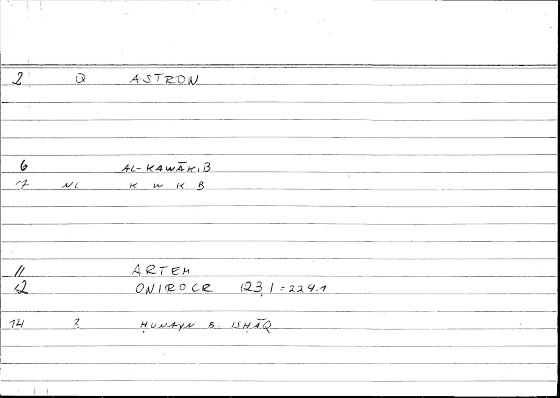 2 Q ASTRON
6 AL-KAWĀKIB
7 NL K W K B
11 ARTEM
12 ONIROCR 123,1 = 224.1
14 2 ḤUNAYN B. ISḤĀQ